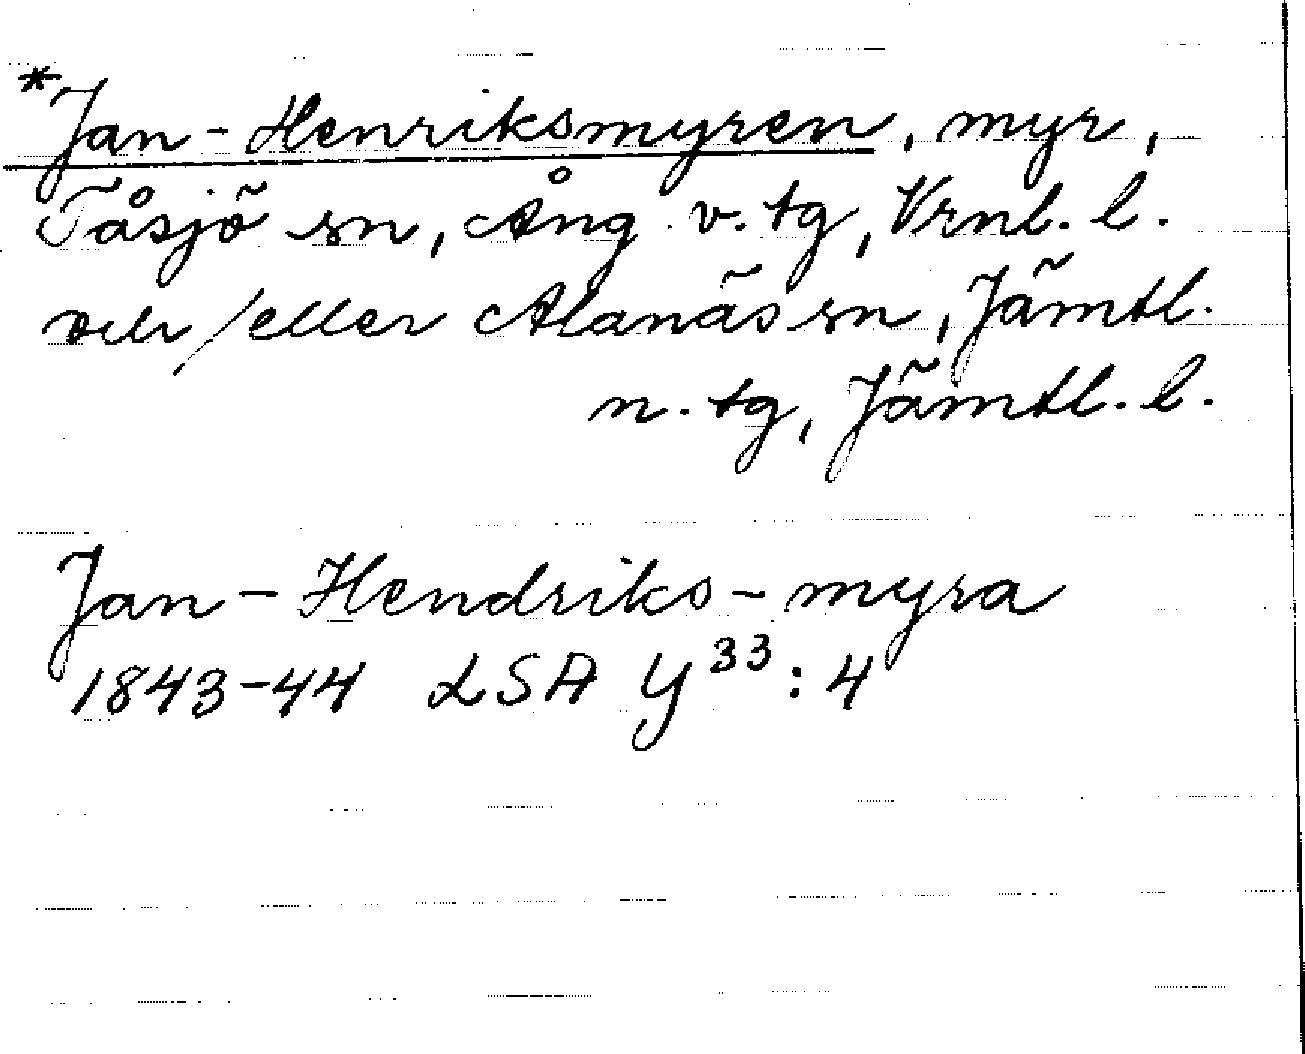 *Jan-Henriksmyren, myr,
Tåsjö sn, Ång v. tg, Vrnl. l.
och/eller Alanäs sn, Jämtl.
n. tg, Jämtl. l.
Jan-Hendriks-myra
1843-44 LSA Y³³:4